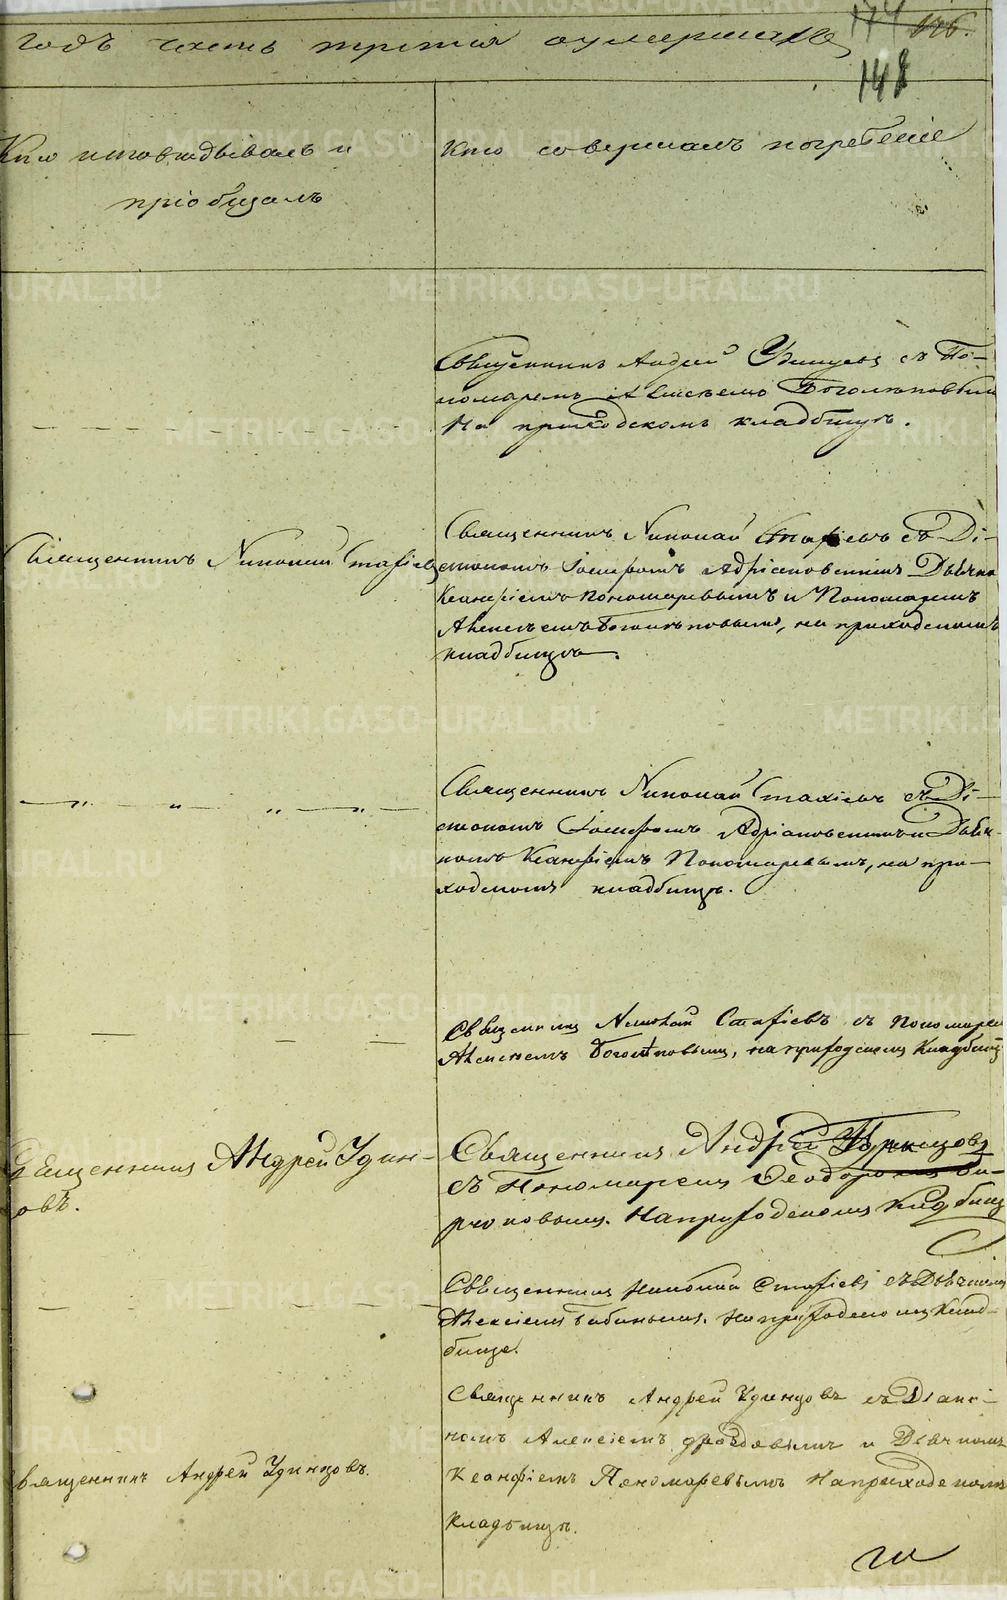 годъ часть третія оумершихъ
174 176.
148
Кто исповѣдывалъ и
пріобщалъ
Кто совершалъ погребеніе
Священникъ Андрей Удинцевъ съ По-
номаремъ Алексѣемъ Боголѣповымъ
На приходскомъ кладбищѣ.
Священникъ Николай Стафіевъ
Священникъ Николай Стафіевъ съ Ді-
акономъ Іосифомъ Адріановскимъ Дьячко
Ксанфіемъ Пономаревымъ и Пономаремъ
Алексѣемъ Боголѣповымъ, на приходскомъ
кладбищѣ.
Священникъ Николай Стафіевъ съ Ді-
акономъ Іосифомъ Адріановскимъ и Дьяч-
комъ Ксанфіемъ Пономаревымъ, на при-
ходскомъ кладбищѣ.
Священникъ Николай Стафіевъ съ Пономарем
Алексѣемъ Боголѣповымъ, на приходскомъ Кладбищѣ
Священникъ Андрей Удин-
овъ.
Священникъ Андрей
съ Пономаремъ Ѳеодоромъ
На приходскомъ Кладбищѣ
Священникъ Николай Стафіевъ съ Дьячкомъ
Алексіемъ Бабинымъ. На приходскомъ Клад-
бищѣ.
Священникъ Андрей Удинцовъ
Священникъ Андрей Удинцовъ съ Діако-
номъ Алексіемъ Дроздовымъ и Дьячкомъ
Ксанфіемъ Пономаревымъ На приходскомъ
Кладбищѣ.
METRIKI.GASO-URAL.RU